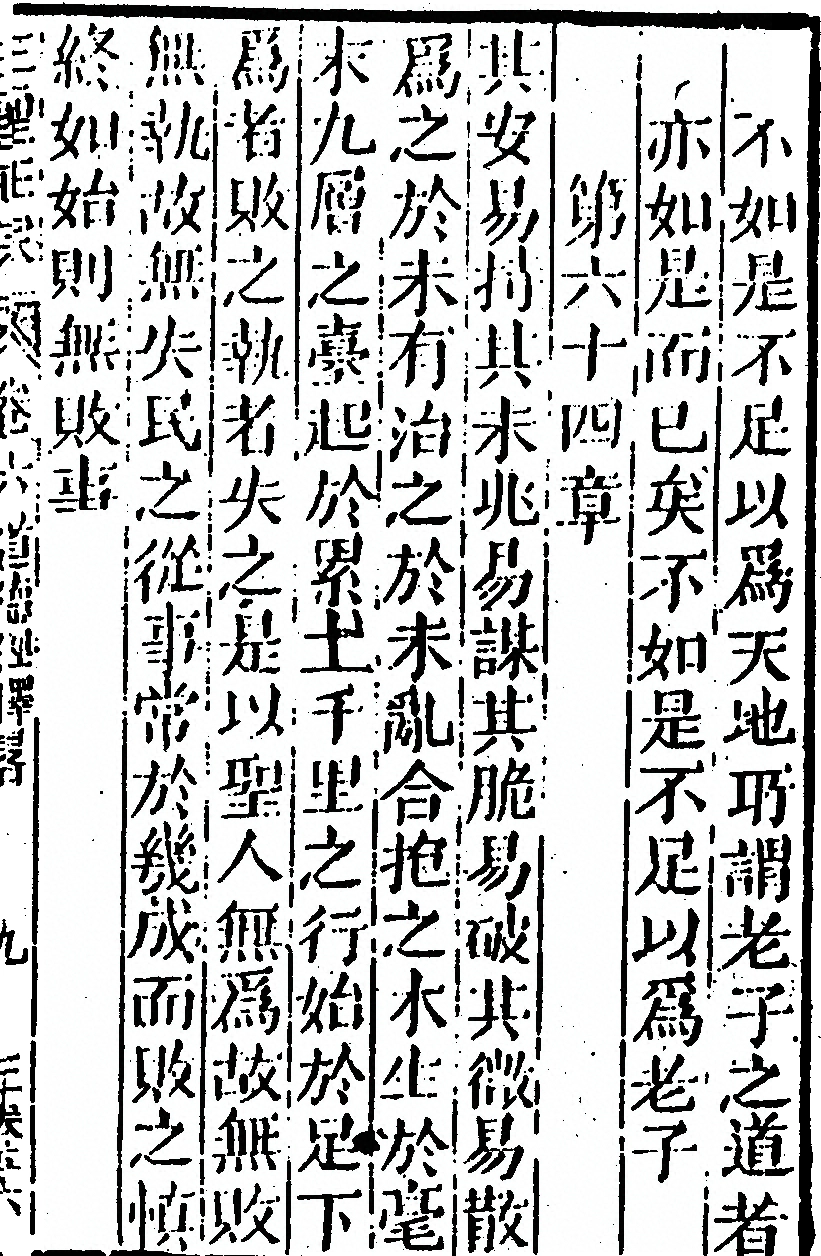 不如是不足以爲天地巧謂老子之道者
亦如是而已矣不如是不足以爲老子
第六十四章
其安易持其未兆易謀其脆易破其微易散
爲之於未有治之於未亂合抱之木生於毫
末九層之臺起於累土千里之行始於足下
爲者敗之執者失之是以聖人無爲故無敗
無執故無失民之從事常於幾成而敗之慎
終如始則無敗事